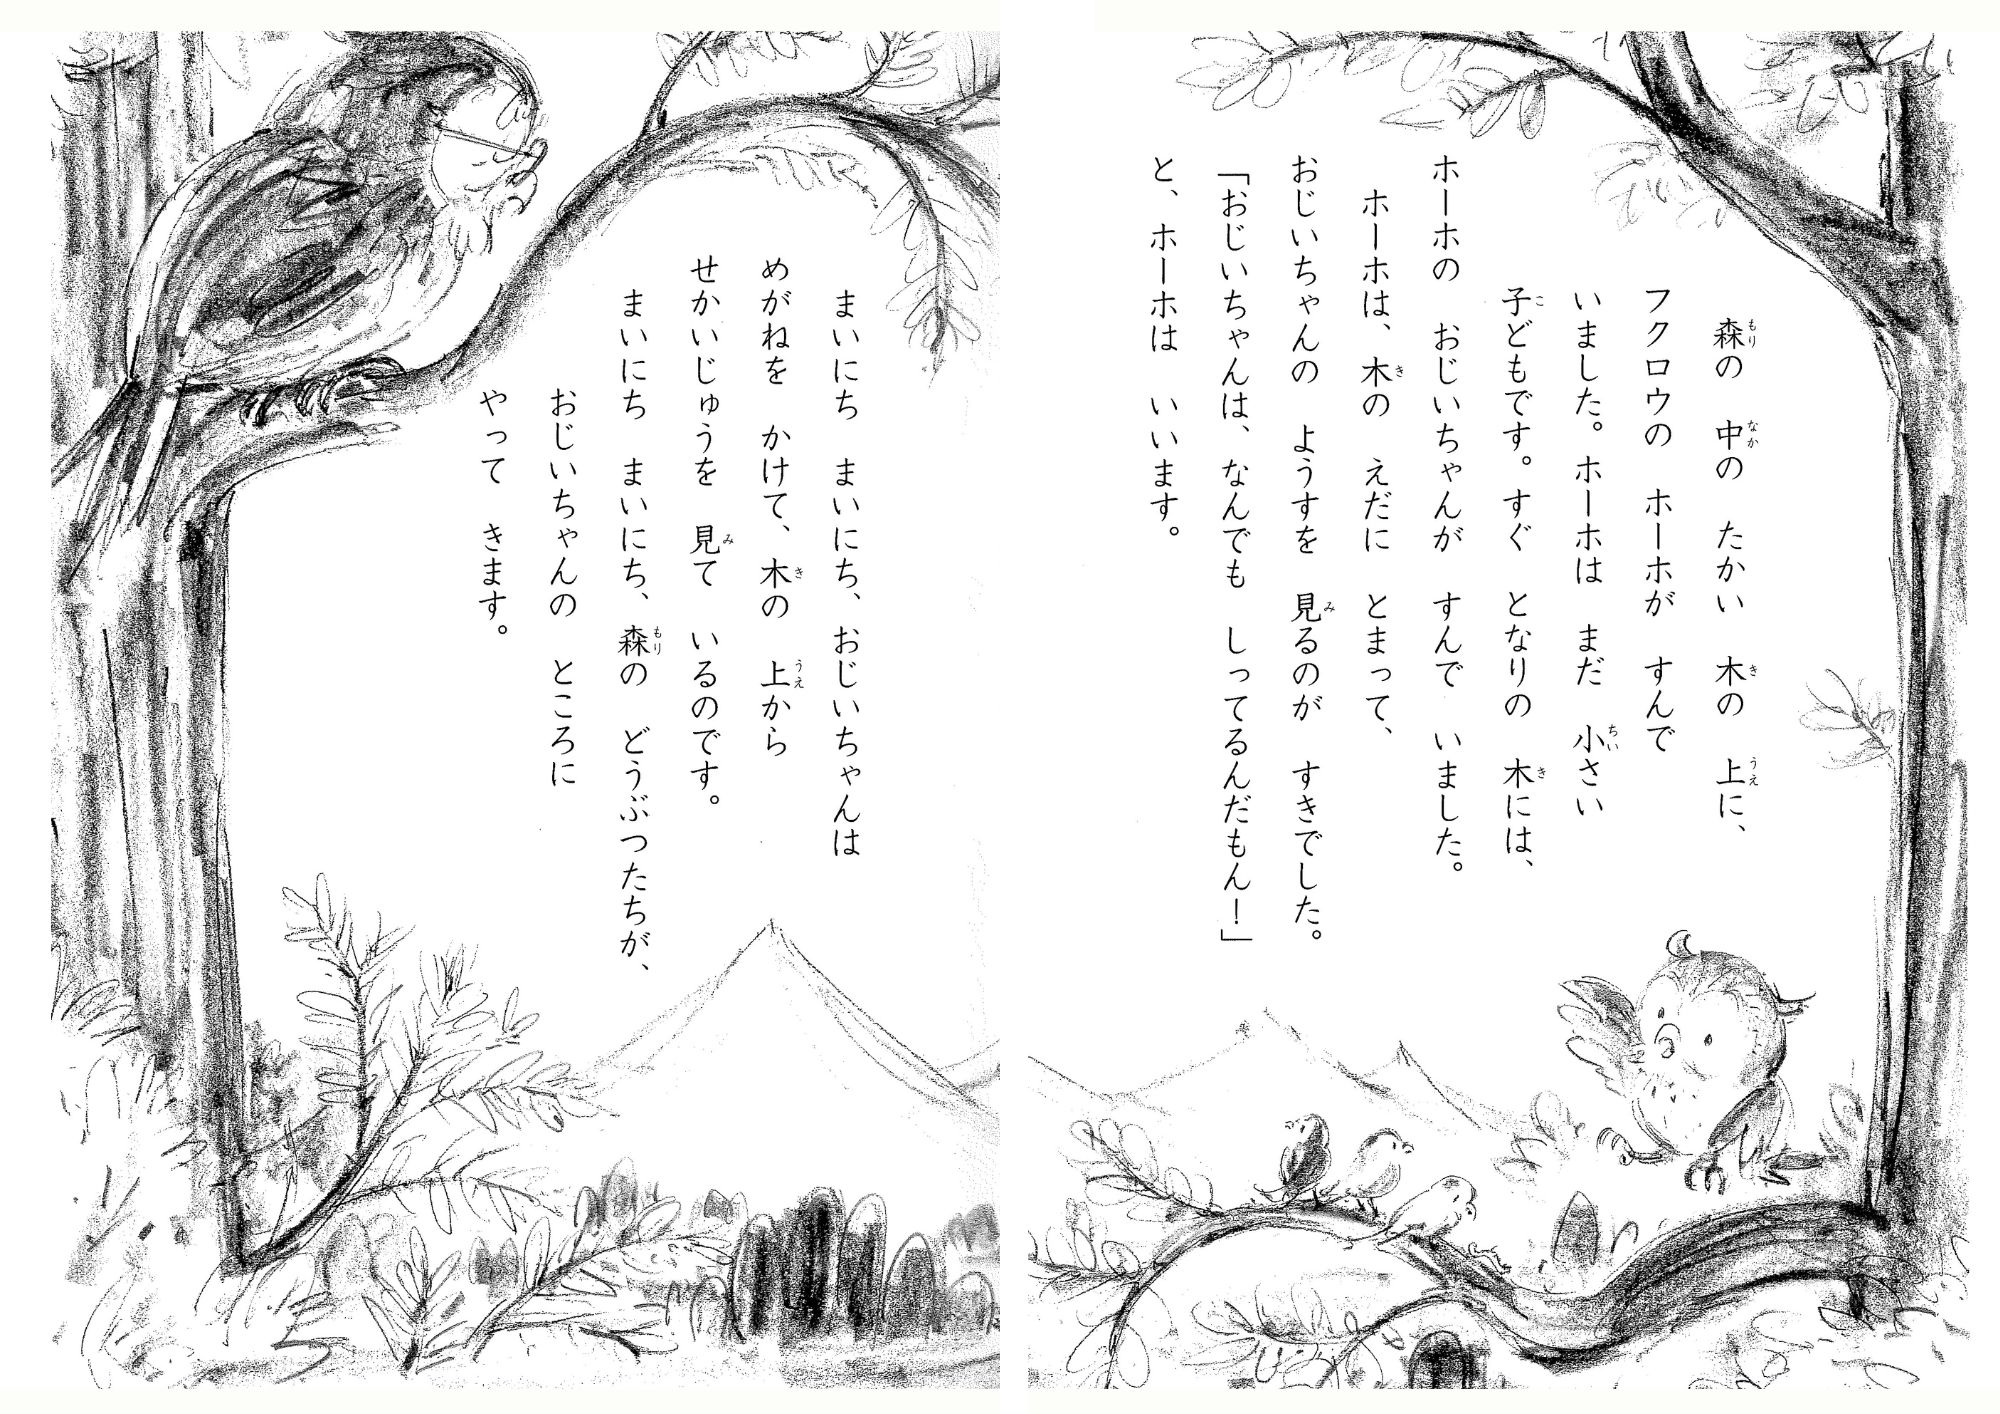 森の 中の たかい 木の 上に、
フクロウの ホーホが すんで
いました。ホーホは まだ 小さい
子どもです。すぐ となりの 木には、
ホーホの おじいちゃんが すんで いました。
ホーホは、木の えだに とまって、
おじいちゃんの ようすを 見るのが すきでした。
「おじいちゃんは、なんでも しってるんだもん！」
と、ホーホは いいます。
まいにち まいにち、おじいちゃんは
めがねを かけて、木の 上から
せかいじゅうを 見て いるのです。
まいにち まいにち、森の どうぶつたちが、
おじいちゃんの ところに
やって きます。